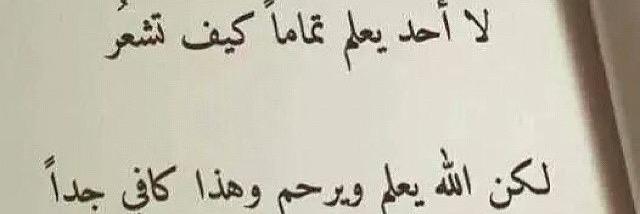 لا أحد يعلم تماماً كيف تشعُر
لكن الله يعلم ويرحم وهذا كافي جداً